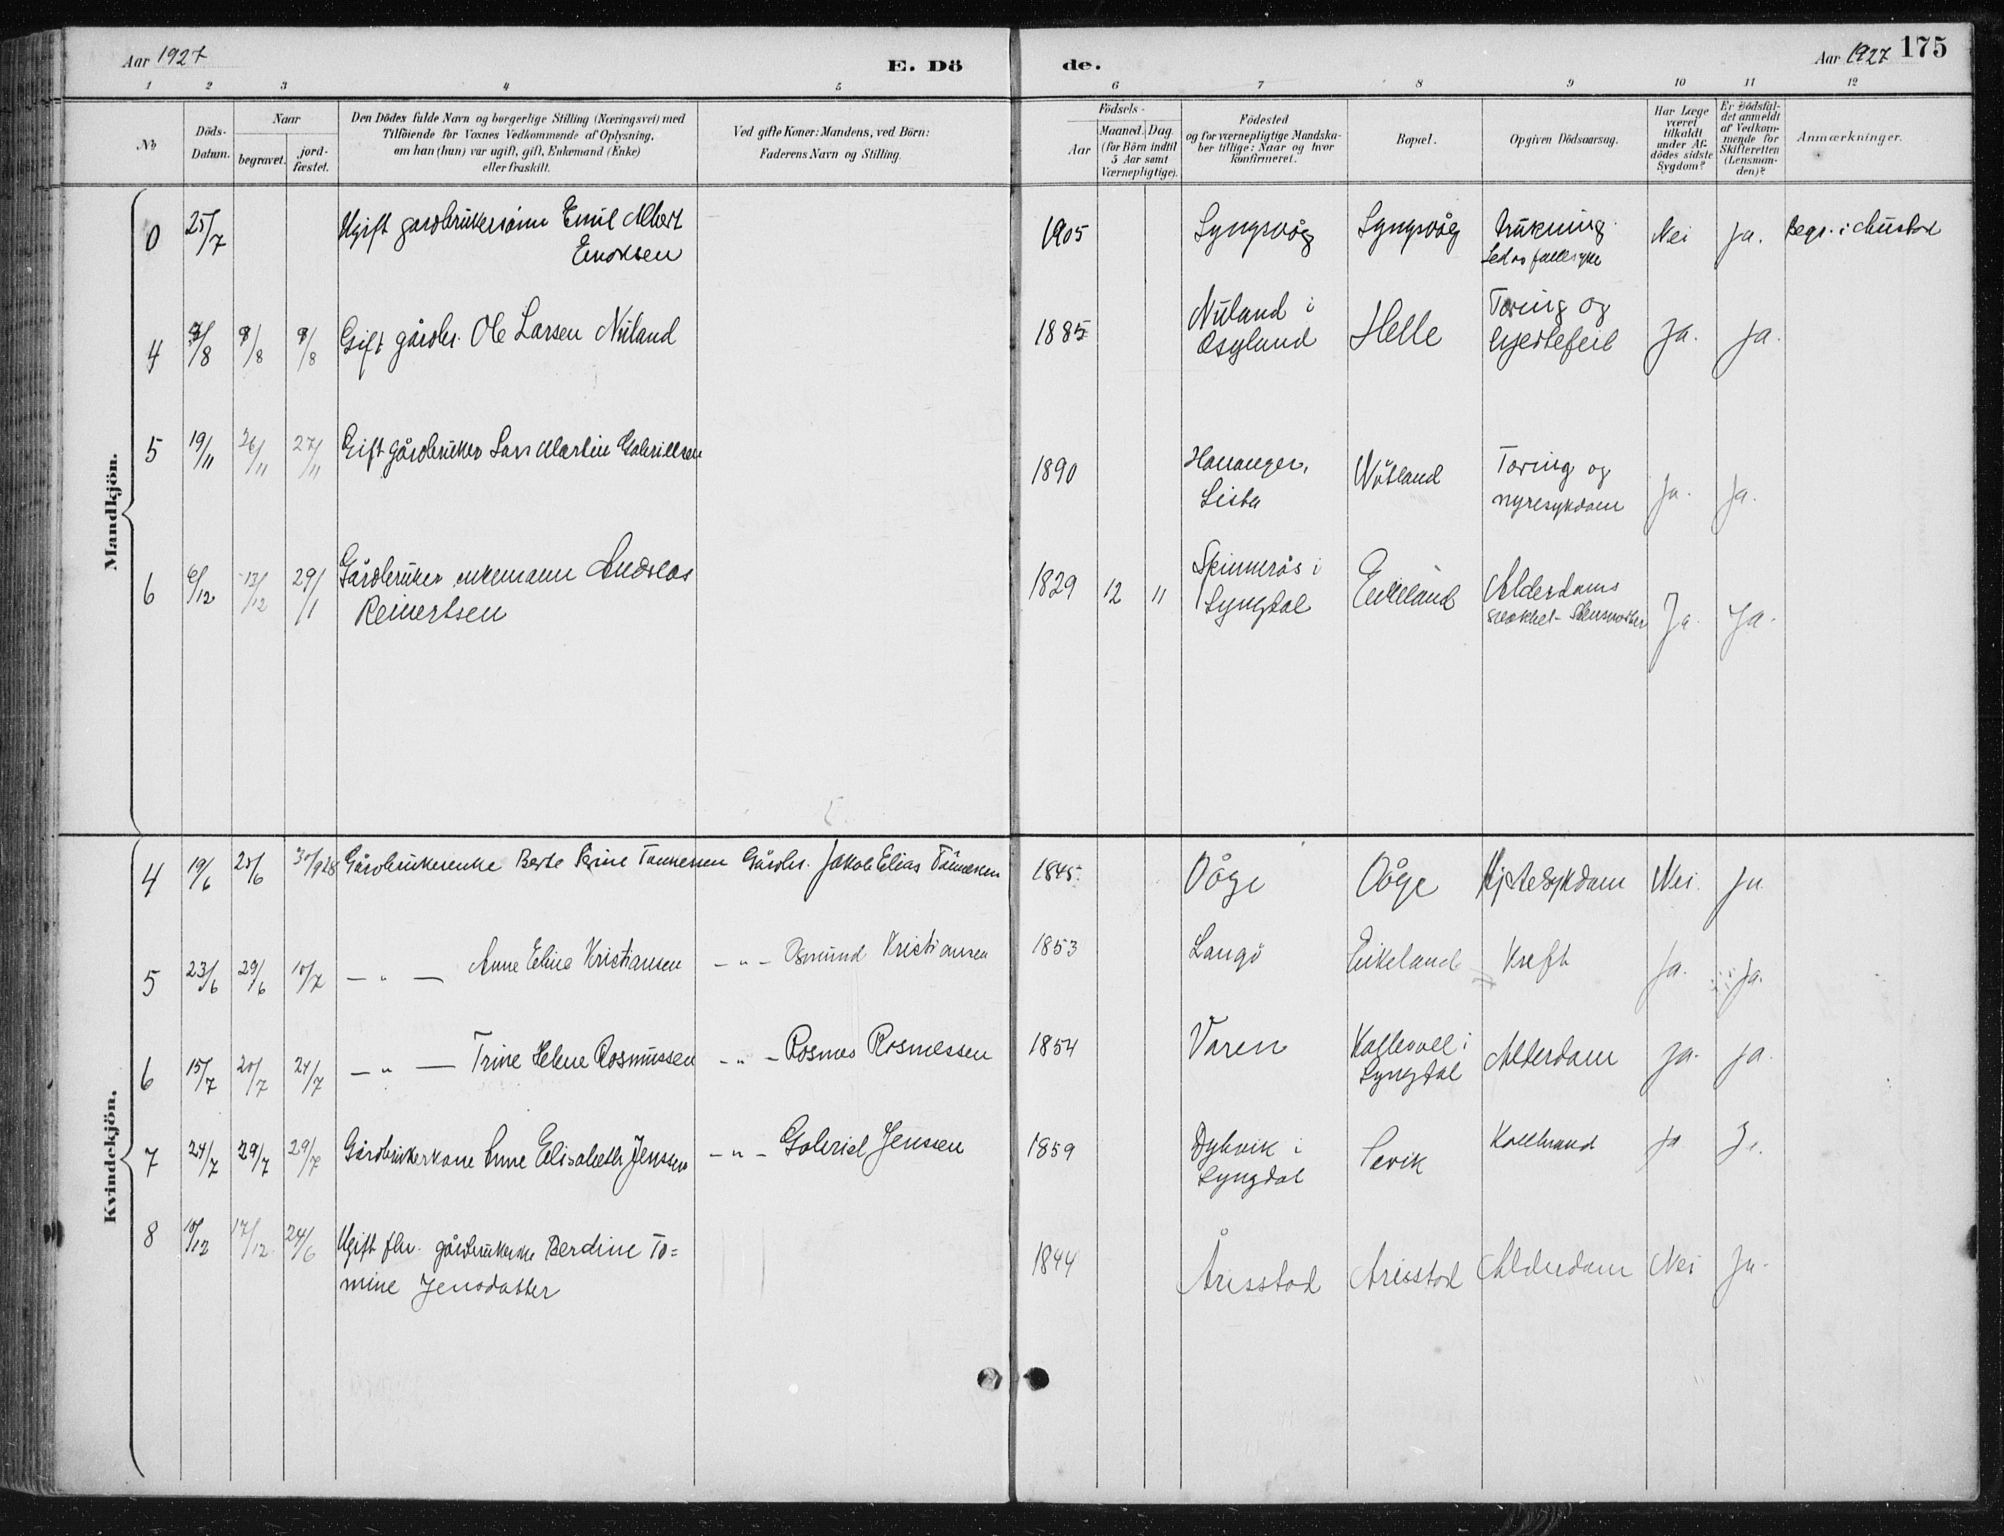 Aar 1927
E. Dö
de.
Aar 1927 175
1 2 3 4 5 6 7 8 9 10 11 12
No
Döds-
Datum.
Naar
begravet.
jord-
fæstet.
Den Dödes fulde Navn og borgerlige Stilling (Næringsvei) med
Tilföiende for Voxnes Vedkommende af Oplysning,
om han (hun) var ugift, gift, Enkemand (Enke)
eller fraskilt.
Ved gifte Koner: Mandens, ved Börn:
Faderens Navn og Stilling.
Födsels-
Aar
Maaned. Dag.
(for Börn indtil
5 Aar samt
Værnepligtige).
Födested
og for værnepligtige Mandska-
ber tillige: Naar og hvor
konfirmeret.
Bopæl.
Opgiven Dödsaarsag.
Har Læge
været
tilkaldt
under Af-
dödes sidste
Sygdom?
Er Dödsfal-
det anmeldt
af Vedkom-
mende for
Skifteretten
(Lensman-
den)?
Anmærkninger.
Mandkjön.
0 25/7 Ugift gardbrukersönn Emil Albert 1905 Lyngsvåg Lyngsvåg Drukning Nei Ja. Begr. i
Enoksen
4 8/8 8/8 Gift gårdbr. Ole Larsen Nuland 1885 Nuland i Helle Tæring og Ja. Ja.
hjertefeil
5 19/11 26/11 27/11 Gift gårdbruker Lars Martin Gabrielsen 1890 Hananger, Tæring og Ja. Ja.
Lista nyresykdom
6 6/12 13/12 29/1 Gårdbruker enkemann Andreas 1829 12 11 Eikeland Alderdoms Ja. Ja.
Reinertsen Lyngdal
Kvindekjön.
4 19/6 25/6 Gårdbrukerenke Berte Serine Tønnessen Gårdbr. Jakob Elias Tønnesen 1845 Våge Våge Hjertesykdom Nei. Ja
5 23/6 29/6 10/7 — " — Anne Eline Kristiansen — " — Osmund Kristiansen 1853 Langø Eikeland Kreft Ja. Ja.
6 15/7 20/7 24/7 — " — Trine Helene Rasmussen — " — Rasmus Rasmussen 1854 Varen Alderdom Ja. Ja.
Lyngdal
7 24/7 29/7 29/7 Gårdbrukerkone Anne Elisabeth Jenssen — " — Gabriel Jenssen 1859 Dybvik i Sevik Koldbrand Ja Ja.
Lyngdal
8 10/12 17/12 24/6 Ugift fhv. Berdine To=
mine Jensdatter 1844 Årisstad Årisstad Alderdom Nei Ja.